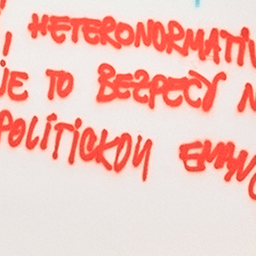 , HETERONORMATIV
JE TO BEZPEČÝ N
POLITICKOU EMANC